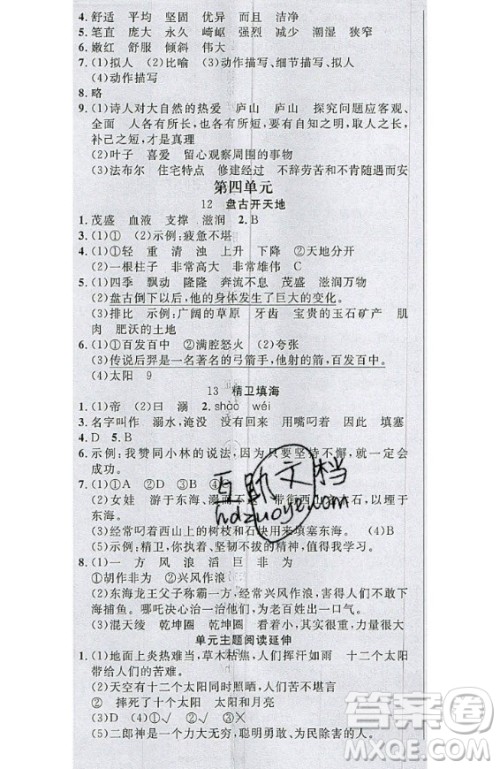 4. 舒适 平均 坚固 优异 而且 洁净
5. 笔直 庞大 永久 崎岖 强烈 减少 漆黑 狭窄
6. 嫩红 舒服 倾斜 均匀
7. (1)拟人 (2)比喻 (3)动作描写、细节描写、拟人
(4)动作描写
8. 略
9. (1)诗人对大自然的热爱 庐山 庐山 探究问题应客观、
全面 人各有所长,也各有所短,要以人之长,
补己之短,才是真理
(2)叶子 喜爱 留心观察周围的事物
(3)法布尔 住宅特点 修建经过 不辞劳苦和不肯松懈
第四单元
12 盘古开天地
1. 茂盛 血液 支撑 滋润 2. B
3. (1)① (2)示例:疲惫不堪
4. (1)①轻 重 清 浊 上升 下降 ②天地分开
(2)一根柱子 非常高大 非常雄伟 C
5. (1)四季 飘动 隆隆 奔流不息 茂盛 滋润万物
(2)盘古倒下以后,他的身体发生了巨大的变化。
(3)排比 示例:广阔的草原 牙齿 宝贵的玉石矿产 肌
肉 肥沃的土地
6. (1)①百发百中 ②满腔怒火 (2)夸张
(3)传说后羿是一名著名的弓箭手,他射的箭百发百中。
(4)太阳 9
13 精卫填海
1. (1)帝 (2)曰 溺 2. shào wéi
3. 名字叫作 溺水,淹没 没有回来 用嘴叼着 因此 填塞
4. D 5. B
6. 示例:我赞同小林的说法,因为只要坚持不懈,就一定会
成功。
7. (1)①√ ②× ③× ④√
(2)女娃 游于东海、溺于东海、不返 常衔西山之木石,以
堙于东海
(3)经常叼着西山上的树枝和石块用来填塞东海。 (4)B
(5)示例:精卫,我赞叹你的执着、坚韧不拔的精神!
8. (1)一 方 风 浪 滔 巨 非 为
①胡作非为 ②兴风作浪
(2)东海龙王父子霸占一方,经常兴风作浪,害得人们不敢
下海捕鱼。哪吒为老百姓出了一口气。
(3)混天绫 乾坤圈 乾坤圈 混天绫
单元主题阅读延伸
1. (1)地面上炎热难当,草木枯焦,人们叫苦不迭。 太阳
带给人们的苦难。
(2)天空有十二个太阳同时照晒,人们苦不堪言
2. (1)① (2)摔死了十个太阳 太阳和月亮
(3)D (4)①√ ②× ③√
(5)二郎神是一个力大无穷、聪明勇敢、为民除害的人。
互助文档
hdzuoye.com
答案圈
MXQE.COM